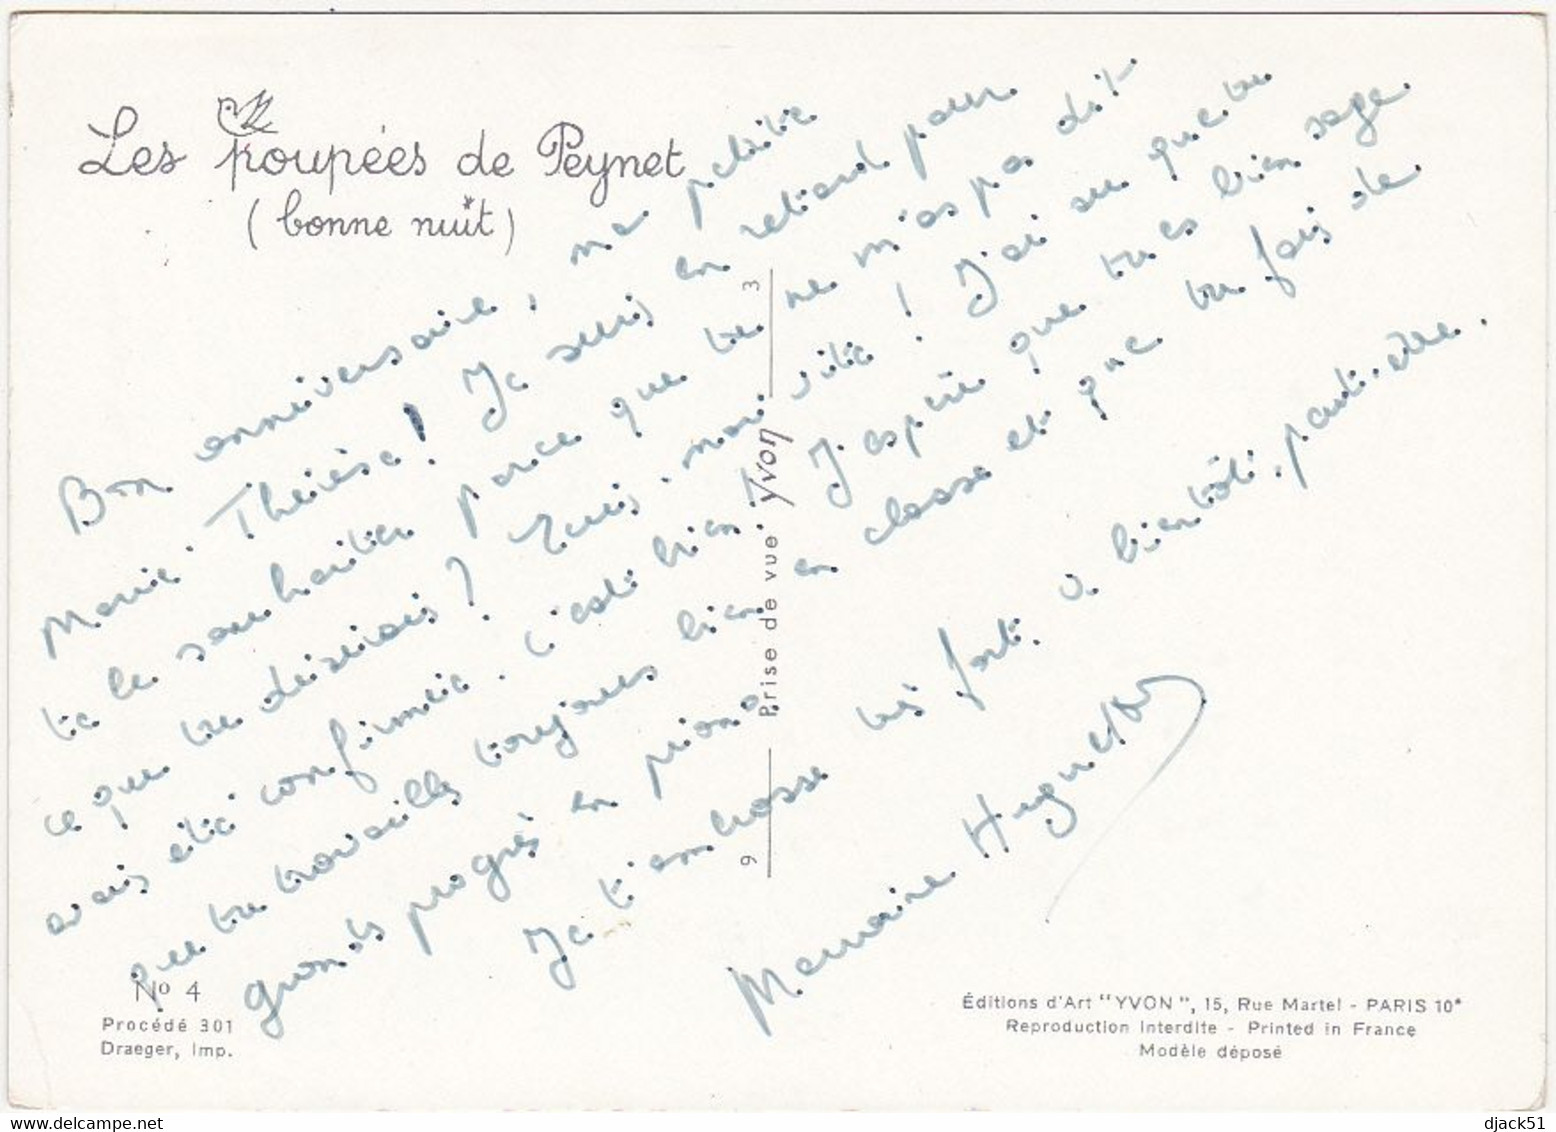 Les poupées de Peynet
(bonne nuit)
Bon anniversaire, ma petite
Marie-Thérèse! Je suis en retard pour
te le souhaiter parce que tu ne m'as pas dit
ce que tu désirais? Puis-moi vite! J'ai su que tu
avais été confirmée. C'est bien! J'espère que tu es bien sage
que tu travailles toujours bien en classe et que tu fais de
grands progrès en piano
Je t'embrasse très fort. à bientôt, peut-être.
Marraine Huguette
9
3
Prise de vue Yvon
No 4
Procédé 301
Draeger, Imp.
Éditions d'Art "YVON", 15, Rue Martel - PARIS 10e
Reproduction Interdite - Printed in France
Modèle déposé
delcampe.net
djack51